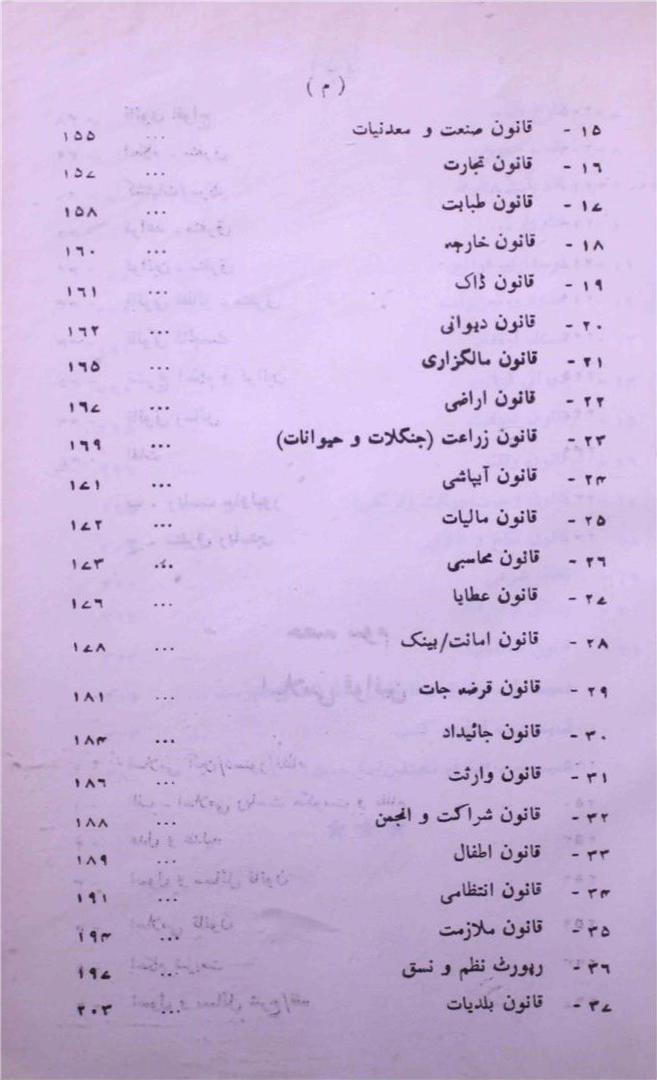 ( م )
۱۵ - قانون صنعت و معدنیات ... ۱۵۵
۱۶ - قانون تجارت ... ۱۵۷
۱۷ - قانون طبابت ... ۱۵۸
۱۸ - قانون خارجہ ... ۱۶۰
۱۹ - قانون ڈاک ... ۱۶۱
۲۰ - قانون دیوانی ... ۱۶۲
۲۱ - قانون مالگزاری ... ۱۶۵
۲۲ - قانون اراضی ... ۱۶۷
۲۳ - قانون زراعت (جنگلات و حیوانات) ... ۱۶۹
۲۴ - قانون آبپاشی ... ۱۷۱
۲۵ - قانون مالیات ... ۱۷۲
۲۶ - قانون محاسبی ... ۱۷۳
۲۷ - قانون عطایا ... ۱۷۶
۲۸ - قانون امانت/بینک ... ۱۷۸
۲۹ - قانون قرضہ جات ... ۱۸۱
۳۰ - قانون جائیداد ... ۱۸۴
۳۱ - قانون وارثت ... ۱۸۶
۳۲ - قانون شراکت و انجمن ... ۱۸۸
۳۳ - قانون اطفال ... ۱۸۹
۳۴ - قانون انتظامی ... ۱۹۱
۳۵ - قانون ملازمت ... ۱۹۴
۳۶ - رپورٹ نظم و نسق ... ۱۹۷
۳۷ - قانون بلدیات ... ۲۰۳